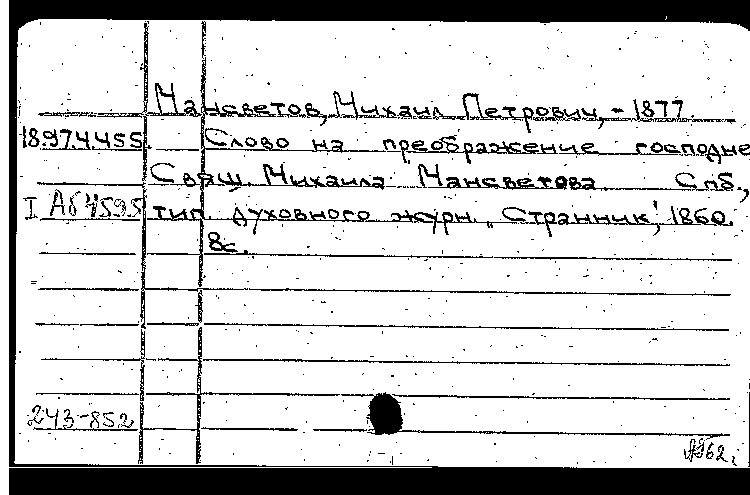 Мансветов, Михаил Петрович, - 1877.
18.974.455. Слово на преображение господне
Свящ. Михаила Мансветова. Спб.,
I Аб 4595 тип. духовного журн. "Странник", 1860.
8с.
243-852